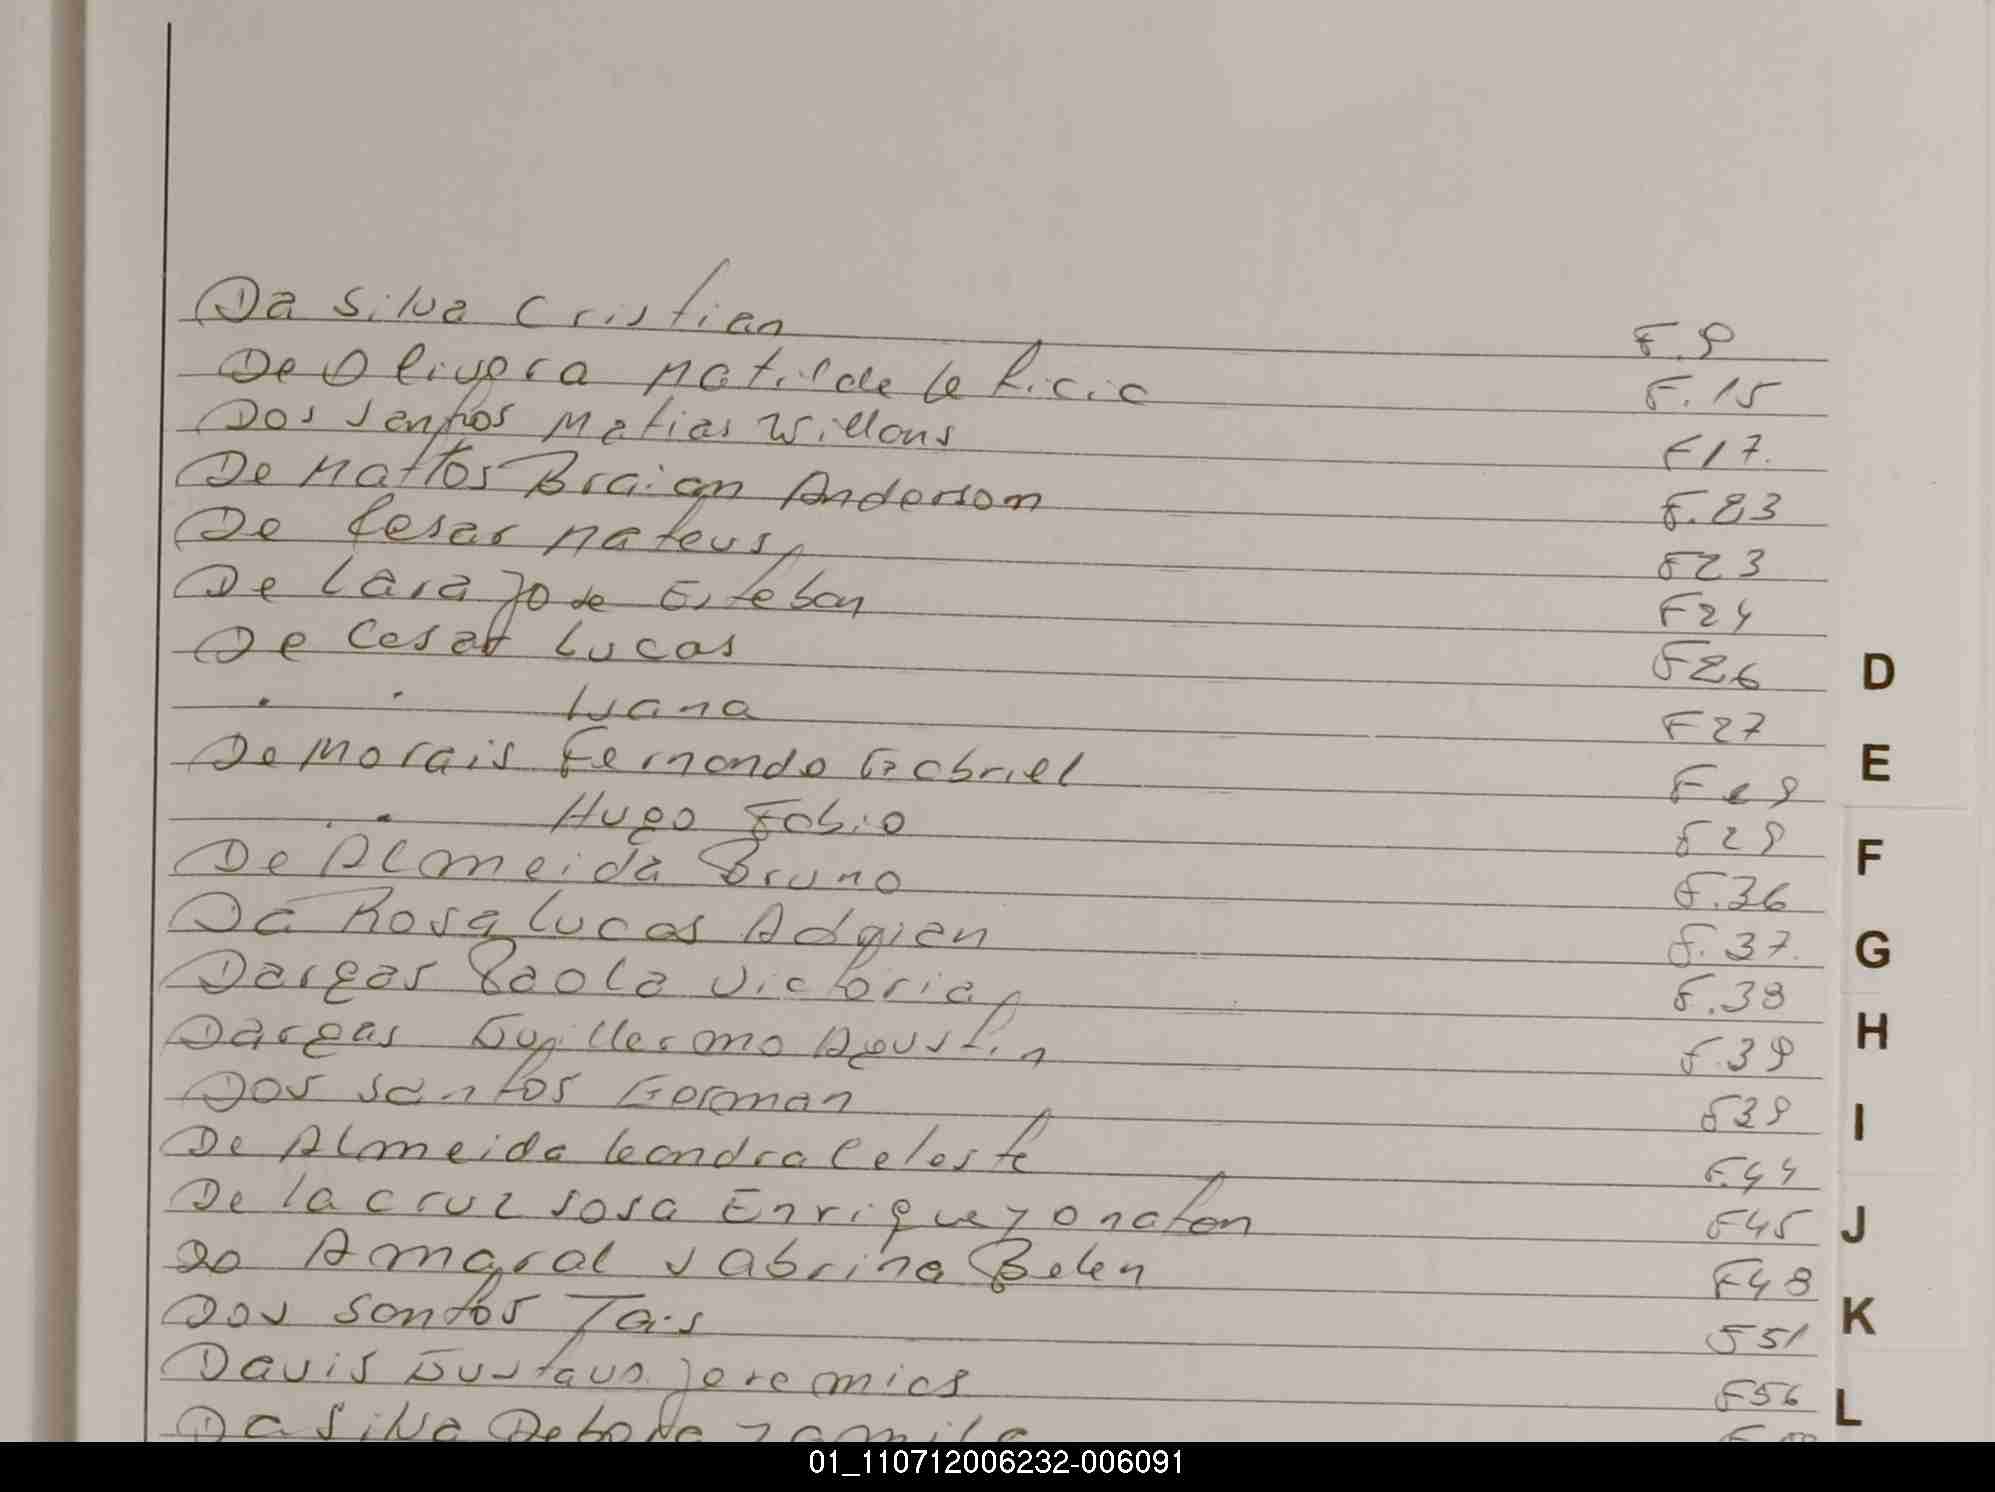 Da Silva Cristian F.9
De Olivera Matilde Leticia F.15
Dos Santos Matias Willons F17.
De Mattos Braian Anderson F.23
De Cesar Mateus F23
De Lara Jose Esteban F24
De Cesar Lucas F26
" " Luana F27
De Morais Fernando Gabriel F29
" " Hugo Fabio F29
De Almeida Bruno F.36
Da Rosa Lucas Adrian F.37.
Dargas Paola Victoria F.38
Dargas Guillermo Agustin F.39
Dos Santos German F39
De Almeida Leandra Celeste F.44
De la cruz Sosa Enrique Jonatan F45
Do Amaral Sabrina Belen F48
Dos Santos Tais F51
Davis Gustavo Jeremias F56
Da Silva Debora Yamila
D
E
F
G
H
I
J
K
L
01_110712006232-006091